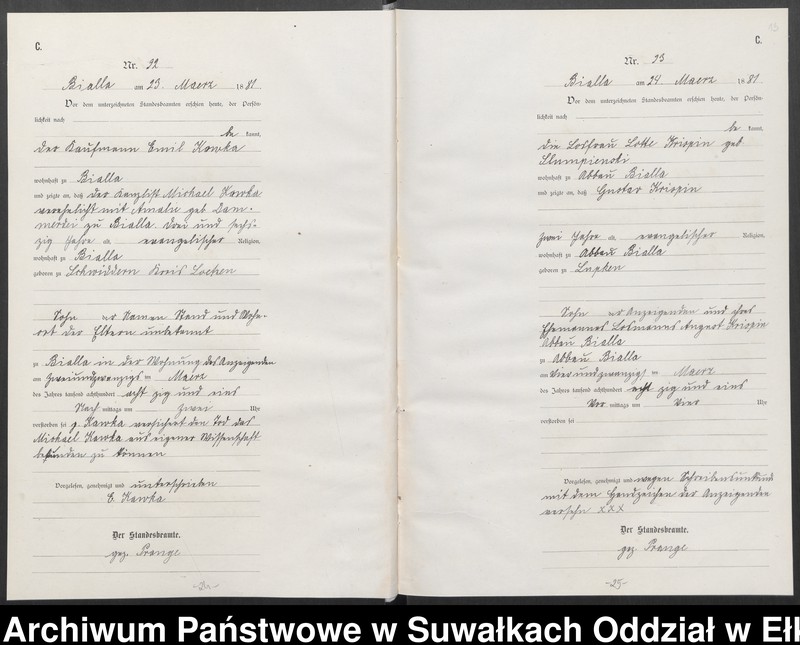 C.
Nr. 92
Bialla am 23. Maerz 1881
Vor dem unterzeichneten Standesbeamten erschien heute, der Persön-
lichkeit nach
be kannt,
der Kaufmann Emil Kawka
wohnhaft zu Bialla
und zeigte an, daß der Kanzlist Michael Kawka
verehelicht mit Amalie geb.
zu Bialla drei und sech-
zig Jahre alt, evangelischer Religion,
wohnhaft zu Bialla
geboren zu Schwiddern Kreis Loetzen
Sohn er Namen Stand und Wohn-
ort der Eltern unbekannt
zu Bialla in der Wohnung des Anzeigenden
am zweiundzwanzigs ten Maerz
des Jahres tausend achthundert acht zig und eins
Nach mittags um zwei Uhr
verstorben sei p. Kawka versichert den Tod des
Michael Kawka aus eigener Wissenschaft
bekunden zu können
Vorgelesen, genehmigt und unterschrieben
E. Kawka
Der Standesbeamte.
gez. Prange
C.
Nr. 93
Bialla am 24. Maerz 1881
Vor dem unterzeichneten Standesbeamten erschien heute, der Persön-
lichkeit nach
be kannt,
die Losfrau Lotte Krispin geb.
wohnhaft zu Abbau Bialla
und zeigte an, daß Gustav Krispin
zwei Jahre alt, evangelischer Religion,
wohnhaft zu Abbau Bialla
geboren zu Lupken
Sohn er Anzeigenden und ihres
Ehemannes Losmannes August Krispin
Abbau Bialla
zu Abbau Bialla
am vierundzwanzigs ten Maerz
des Jahres tausend achthundert acht zig und eins
Vor mittags um vier Uhr
verstorben sei
Vorgelesen, genehmigt und wegen Schreibensunkunde
mit dem Handzeichen der Anzeigenden
versehn XXX
Der Standesbeamte.
gez. Prange
-25-
Archiwum Państwowe w Suwałkach Oddział w Ełk